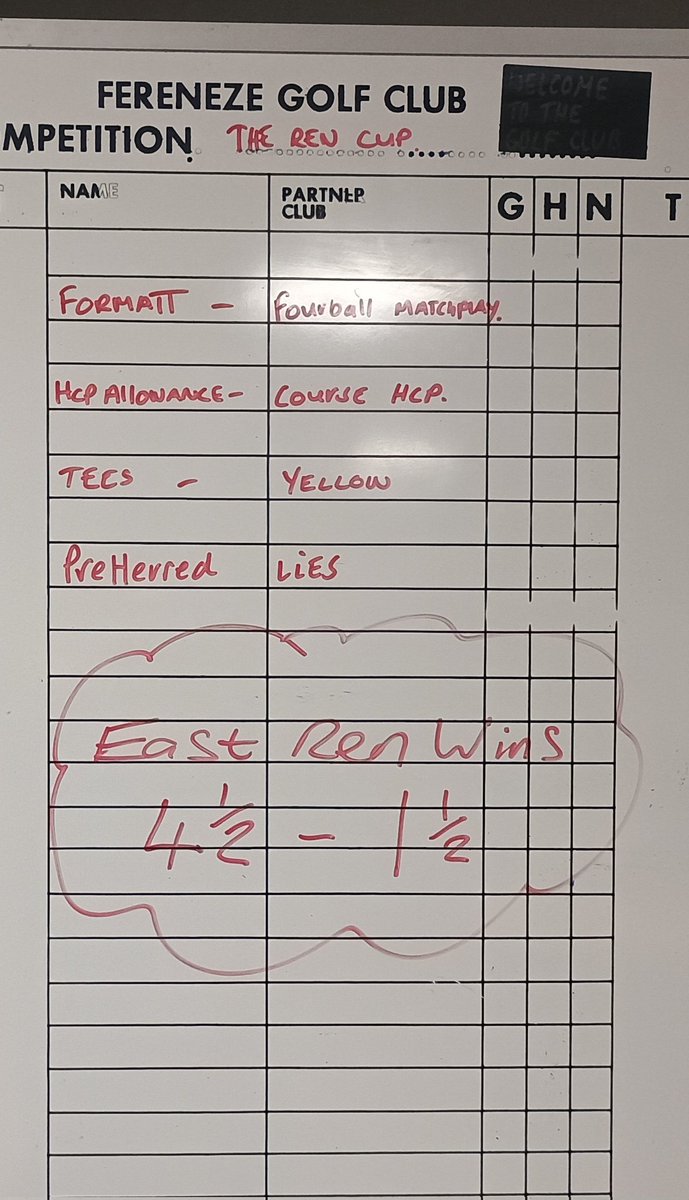 FERENEZE GOLF CLUB
WELCOME
TO THE
GOLF CLUB
MPETITION THE REN CUP
NAME PARTNER CLUB G H N T
FORMATT - Fourball MATCHPLAY.
HCP AllOWANCE- COURSE HCP.
TEES - YELLOW
Preferred LiES
East Ren Wins
4 1/2 - 1 1/2